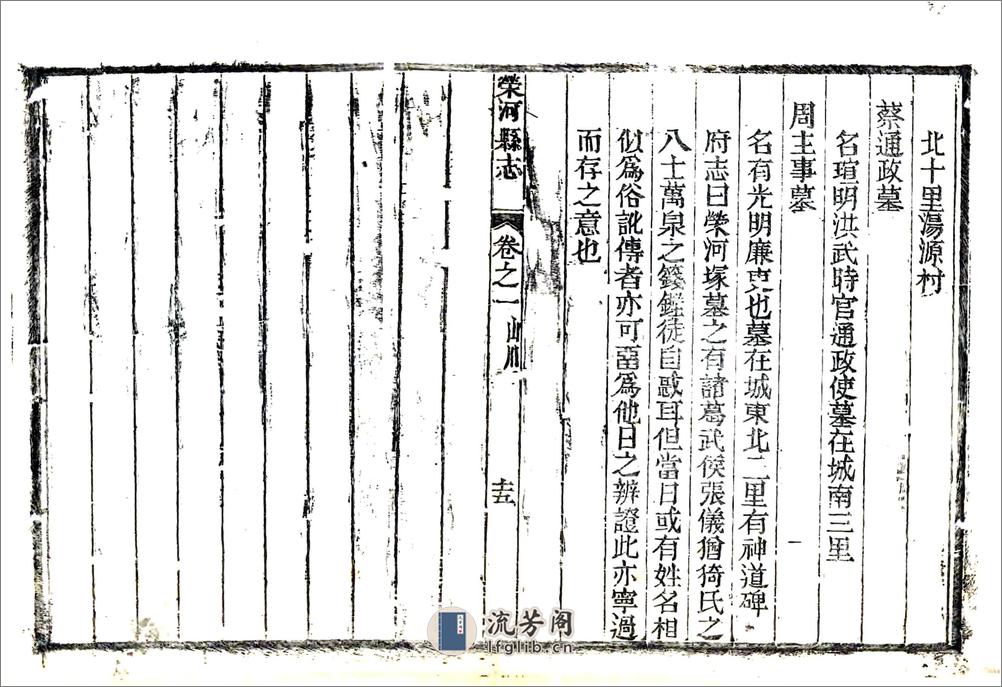 北十里湯源村
蔡通政墓
名瑄明洪武時官通政使墓在城南三里
周主事墓
名有光明廉吏也墓在城東北二里有神道碑
府志曰榮河塚墓之有諸葛武侯張儀猶猗氏之
八士萬泉之籛鏗徒自惑耳但當日或有姓名相
似爲俗訛傳者亦可畱爲他日之辨證此亦寧過
而存之意也
榮河縣志 卷之一 山川 十五
流芳阁
lfglib.cn